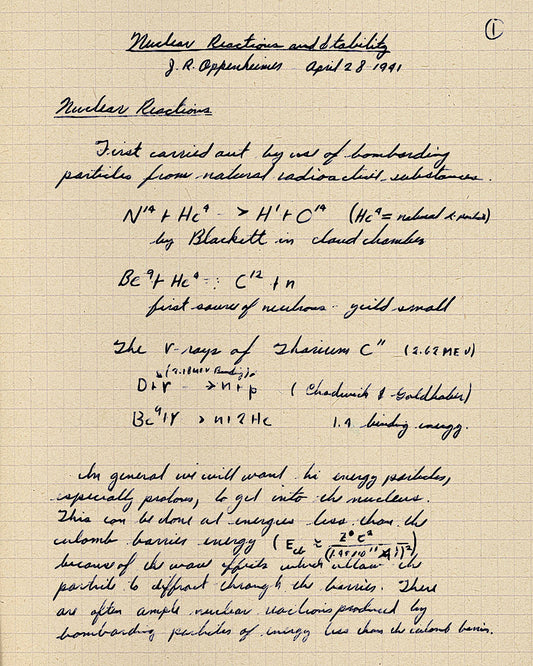 ①
Nuclear Reactions and Stability
J. R. Oppenheimer April 28 1941
Nuclear Reactions
First carried out by use of bombarding
particles from natural radioactive substances.
N¹⁴ + He⁴ -> H¹ + O¹⁴ (He⁴ = natural α particles)
by Blackett in cloud chamber
Be⁹ + He⁴ ∴ C¹² + n
first source of neutrons - yield small
The γ-rays of Thorium C" (2.62 MEV)
(2.18 MEV Binding)
D + γ -> n + p (Chadwick & Goldhaber)
Be⁹ + γ > n + 2 He 1.4 binding energy.
In general we will want hi energy particles,
especially protons, to get into the nucleus.
This can be done at energies less than the
culomb barrier energy
because of the wave effects which allow the
particle to diffract through the barrier. There
are often ample nuclear reactions produced by
bombarding particles of energy less than the culomb barrier.